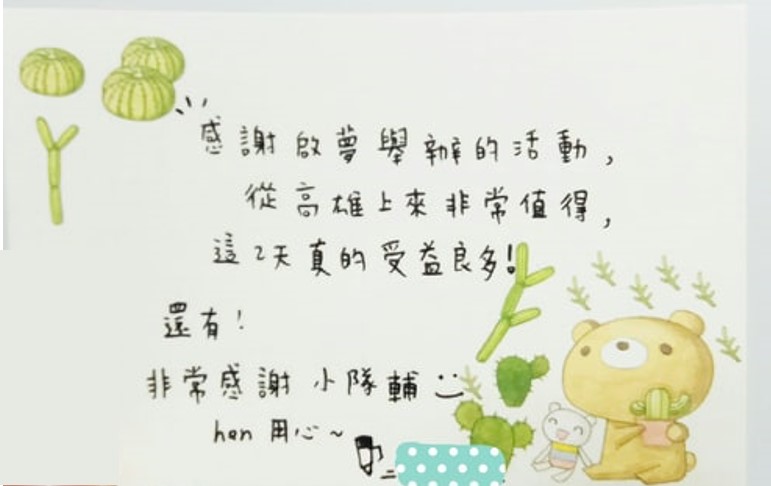 感謝啟夢舉辦的活動,
從高雄上來非常值得,
這2天真的受益良多!
還有!
非常感謝小隊輔
hen 用心~